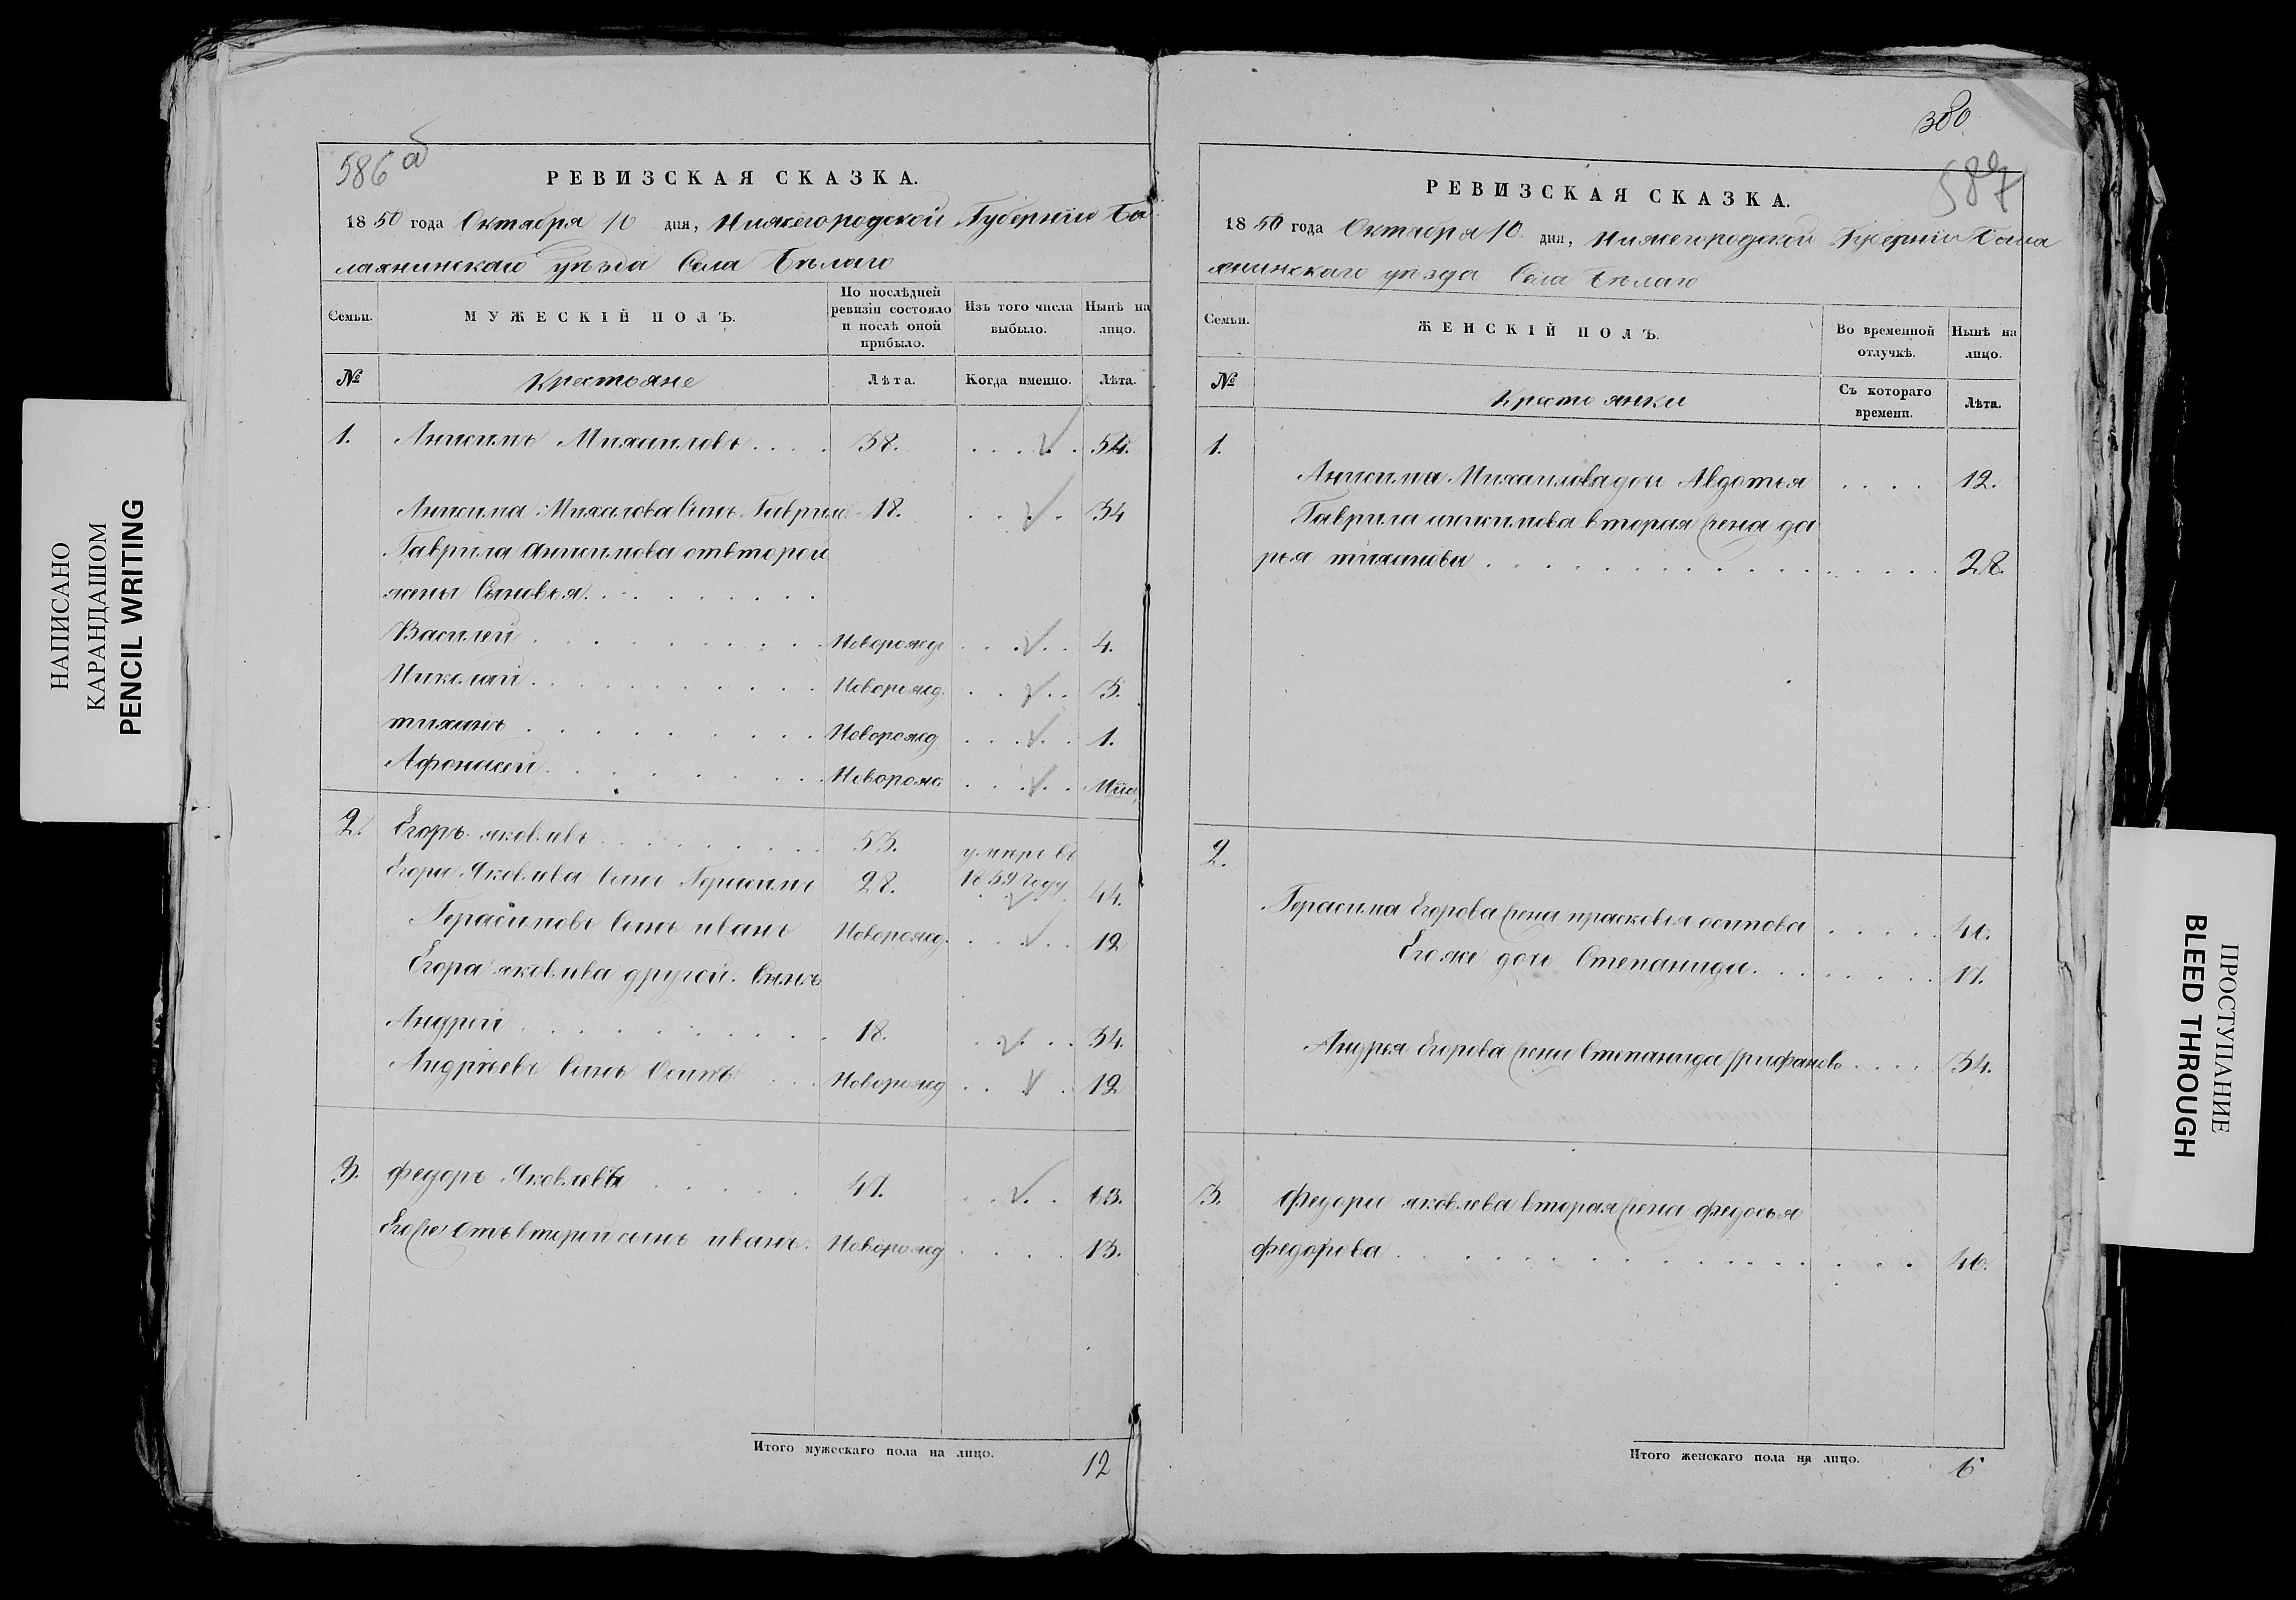 НАПИСАНО
КАРАНДАШОМ
PENCIL WRITING
586 об
РЕВИЗСКАЯ СКАЗКА.
1850 года Октября 10 дня, Нижегородской Губернии Ба
лахнинскаго уѣзда Села Бѣлаго
Семьи.
МУЖЕСКІЙ ПОЛЪ.
По послѣдней ревизіи состояло и послѣ оной прибыло.
Изъ того числа выбыло.
Нынѣ на лицо.
№
Крестьяне
Лѣта.
Когда именно.
Лѣта.
1. Анисимъ Михаиловъ . . . . 38. . . . . 54.
Анисима Михаилова Сынъ Гаврила 18. . . . . 34
Гаврила Анисимова отвторой
жены Сыновья . . . . . .
Василей . . . . . . Новорожд . . . . 4.
Николай . . . . . . Новорожд. . . . . 3.
тихинъ . . . . . . Новорожд . . . . 1.
Афонасей . . . . . . Новорож. . . . .
2. Егоръ яковлевъ . . . . . 53. умиръ въ
Егора Яковлева Сынъ Герасимъ 28. 18 году 44.
Герасимовъ Сынъ иванъ Новорожд. . . . . 12
Егора яковлива другой Сынъ
Андрей . . . . . . 18. . . . . 34.
Андрѣевъ Сынъ Осипъ . . Новорожд . . . . 12
3. федоръ Яковлевъ . . . . 47. . . . . 63.
Егоже отъвторой сынъ иванъ. Новорожд . . . . 13.
Итого мужескаго пола на лицо. 12
380
587
РЕВИЗСКАЯ СКАЗКА.
1850 года Октября 10 дня, Нижегородской Губернии Бала
хнинскаго уѣзда Села Бѣлаго
Семьи.
ЖЕНСКІЙ ПОЛЪ.
Во временной отлучкѣ.
Нынѣ на лицо.
№
Крестьянки
Съ котораго времени.
Лѣта.
1.
Анисима Михаилова дочь Авдотья . . . . 12.
Гаврила анисимова вторая жена да
рья тиханова . . . . . . . . . . 28.
2.
Герасима Егорова жена прасковья осипова . . . . .
Егоже дочь Степанида. . . . . . . 17.
Андрея Егорова жена Степанида трифанова . . . . 34.
3. Федора яковлева вторая жена федосья
федорова . . . . . . . . . . 46.
Итого женскаго пола на лицо. 6
ПРОСТУПАНИЕ
BLEED THROUGH